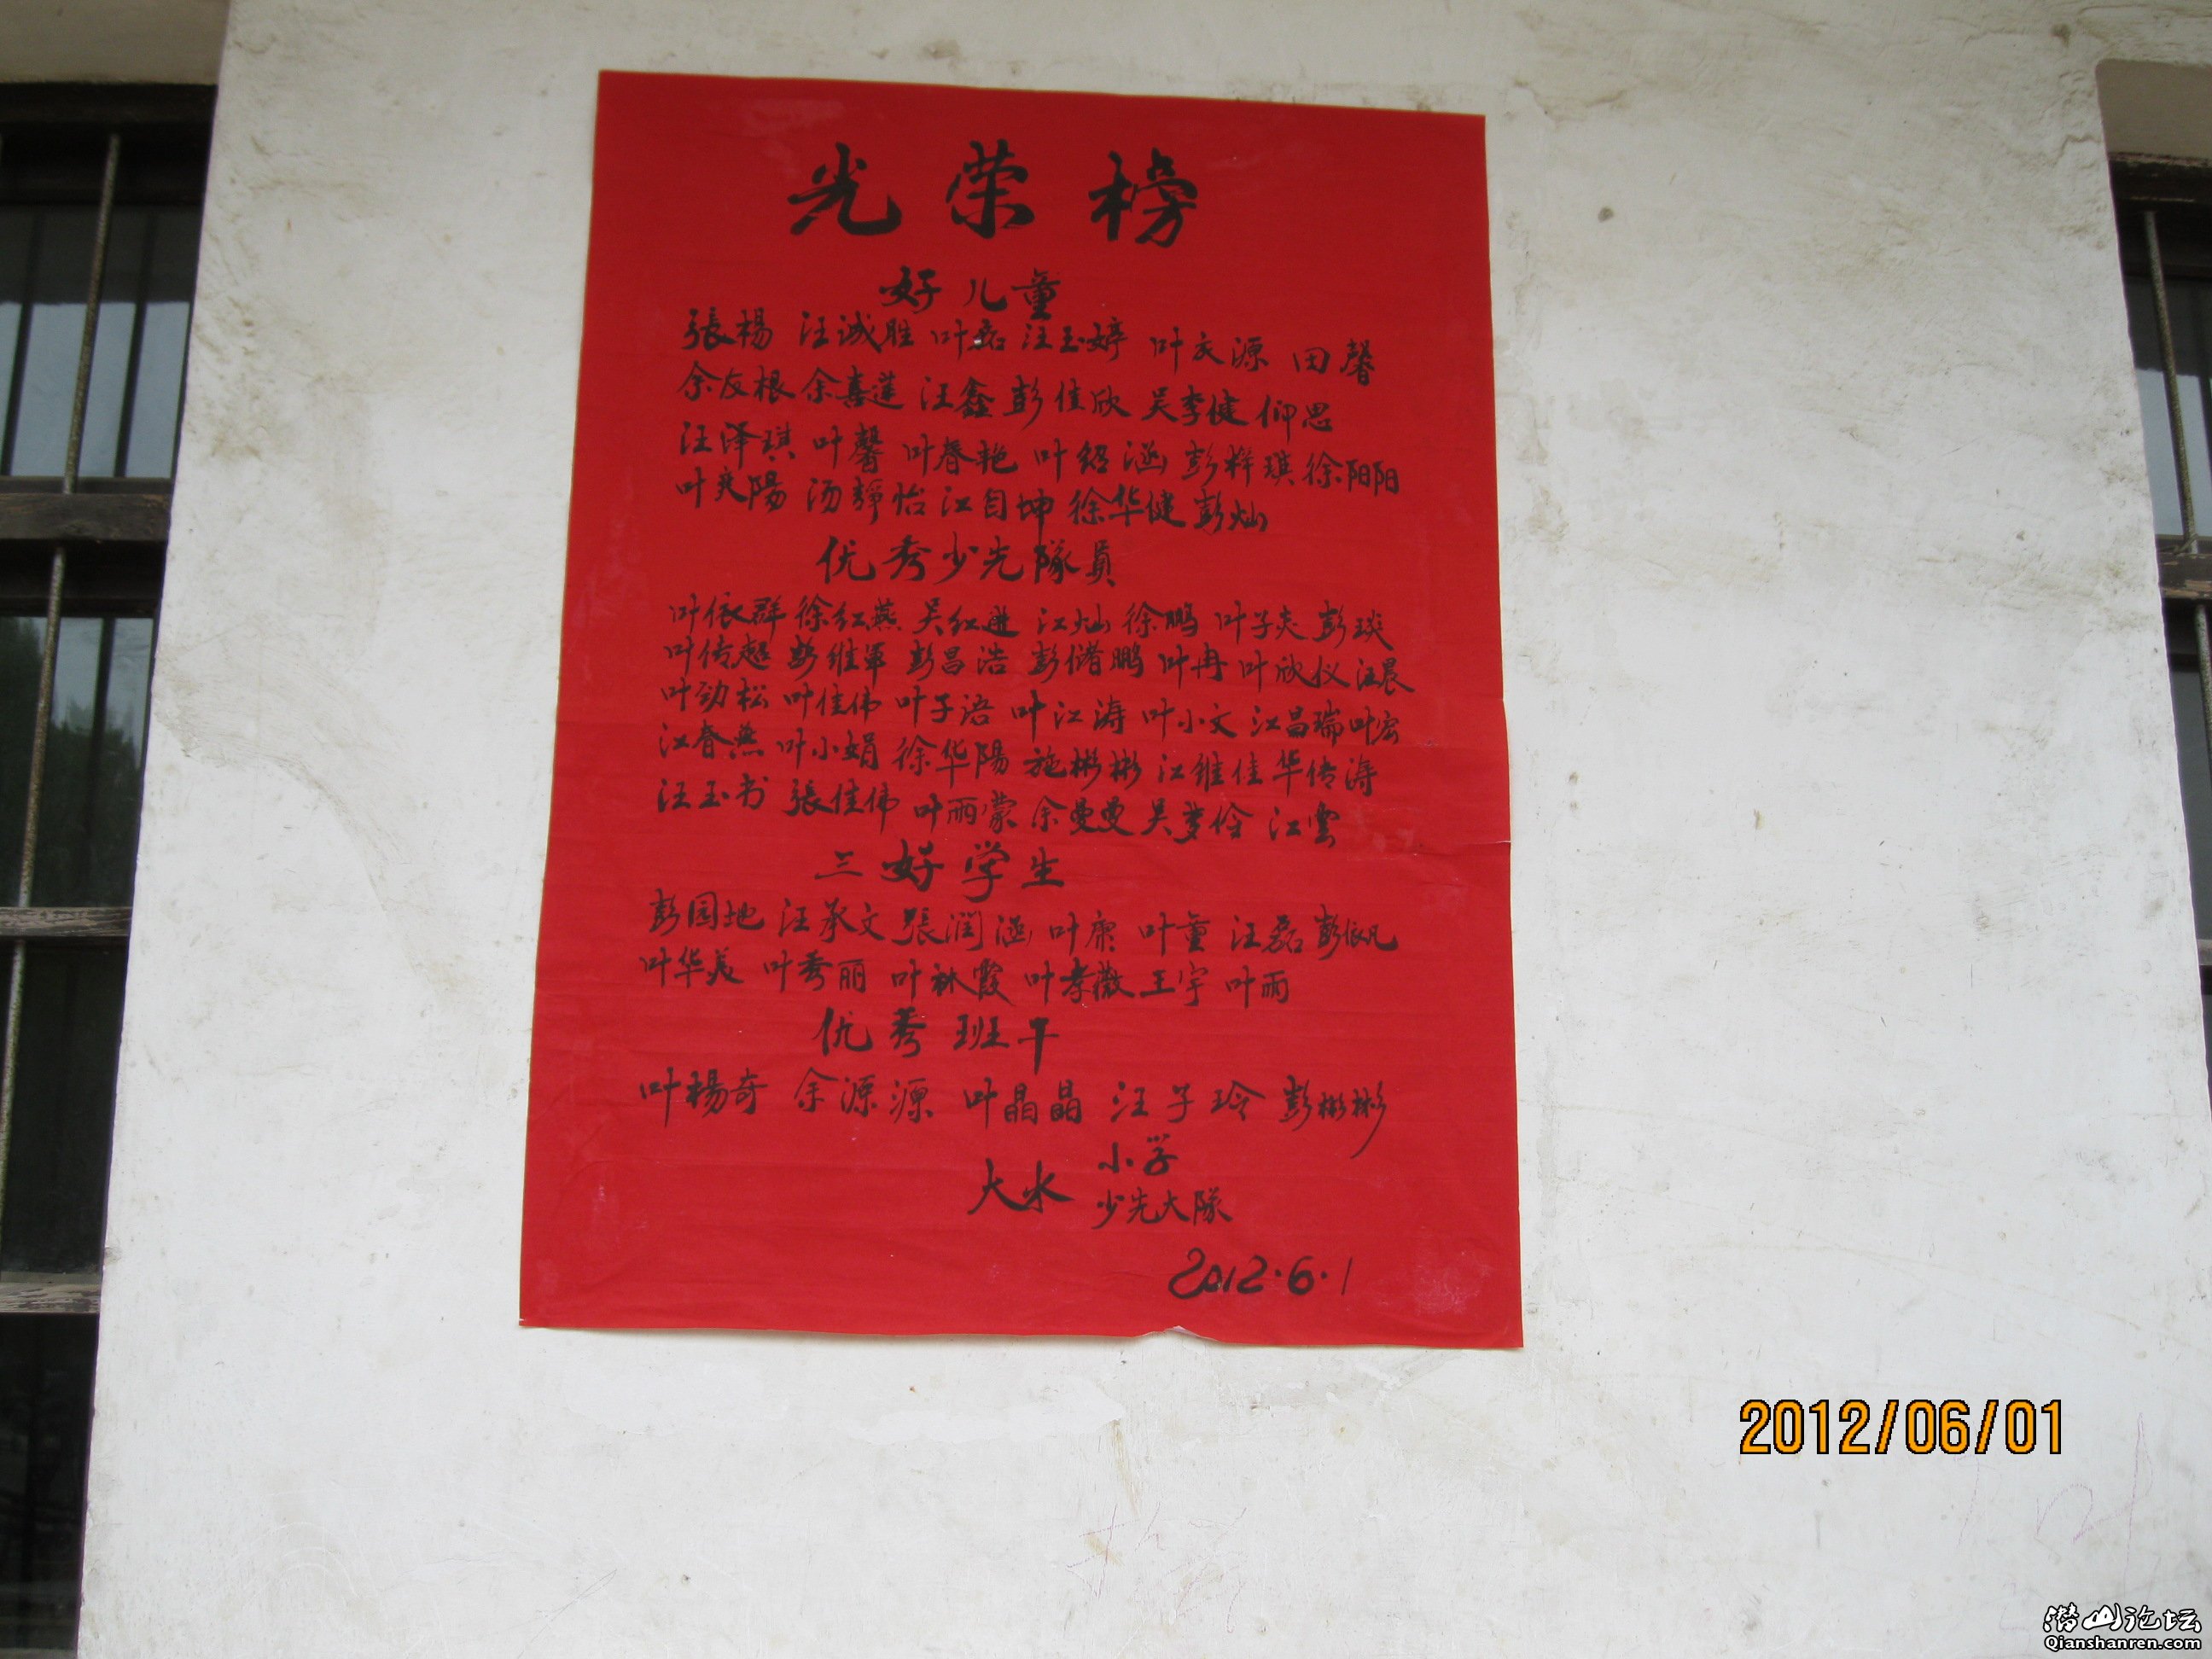 光荣榜
好儿童
張楊 汪诚胜 叶磊 汪玉婷 叶庆源 田馨
余友根 余喜莲 汪鑫 彭佳欣 吴李健 仰思
汪泽琪 叶馨 叶春艳 叶绍涵 彭梓琪 徐阳阳
叶爽陽 汤静怡 江自坤 徐华健 彭灿
优秀少先隊員
叶依群 徐红燕 吴红进 江灿 徐鹏 叶子炎 彭琰
叶传超 彭维军 彭昌浩 彭储鹏 叶冉 叶欣仪 汪晨
叶劲松 叶佳伟 叶子语 叶江涛 叶小文 江昌瑞 叶宏
江春燕 叶小娟 徐华陽 施彬彬 江维佳 华传涛
汪玉书 張佳伟 叶雨蒙 余曼曼 吴梦伶 江雲
三好学生
彭园地 汪承文 張潤涵 叶康 叶童 汪磊 彭依凡
叶华美 叶秀丽 叶林霞 叶孝薇 王宇 叶雨
优秀班干
叶楊奇 余源源 叶晶晶 汪子玲 彭彬彬
大水 小学
少先大隊
2012·6·1
2012/06/01
潜山论坛
Qianshanren.com